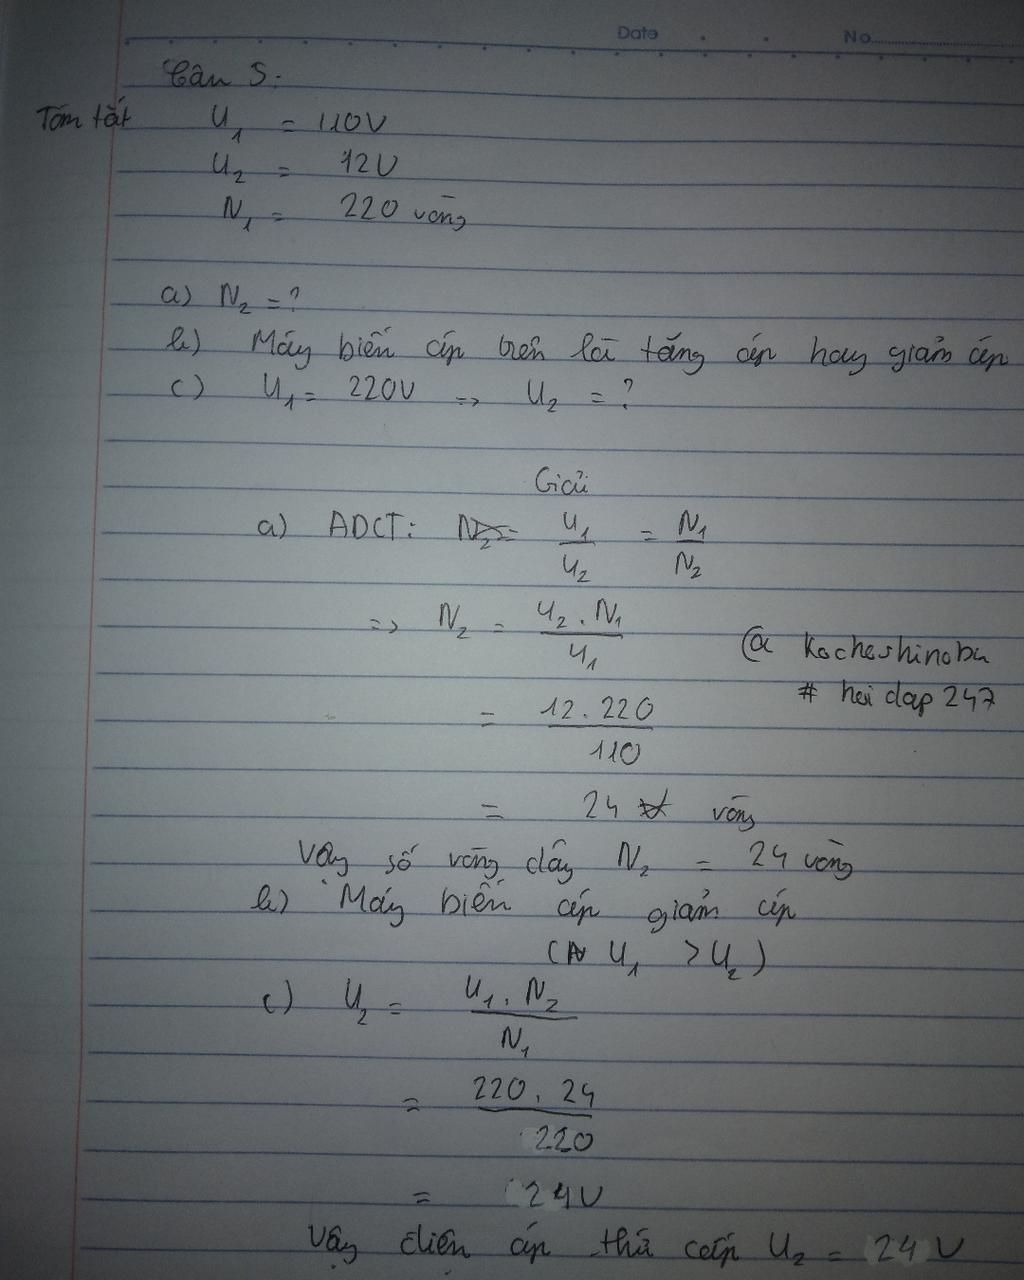 Date No
Câu 5:
Tóm tắt U₁ = 110V
U₂ = 12V
N₁ = 220 vòng
a) N₂ = ?
b) Máy biến áp trên là tăng áp hay giảm áp
c) U₁ = 220V => U₂ = ?
Giải
a) ADCT: N₂ = U₁/U₂ = N₁/N₂
=> N₂ = U₂.N₁/U₁
@ Kocheshinobu
# hoi dap 247
= 12.220/110
= 24 vòng
Vậy số vòng dây N₂ = 24 vòng
b) Máy biến áp giảm áp
(U₁ > U₂)
c) U₂ = U₁.N₂/N₁
= 220.24/220
= 24V
Vậy điện áp thứ cấp U₂ = 24V